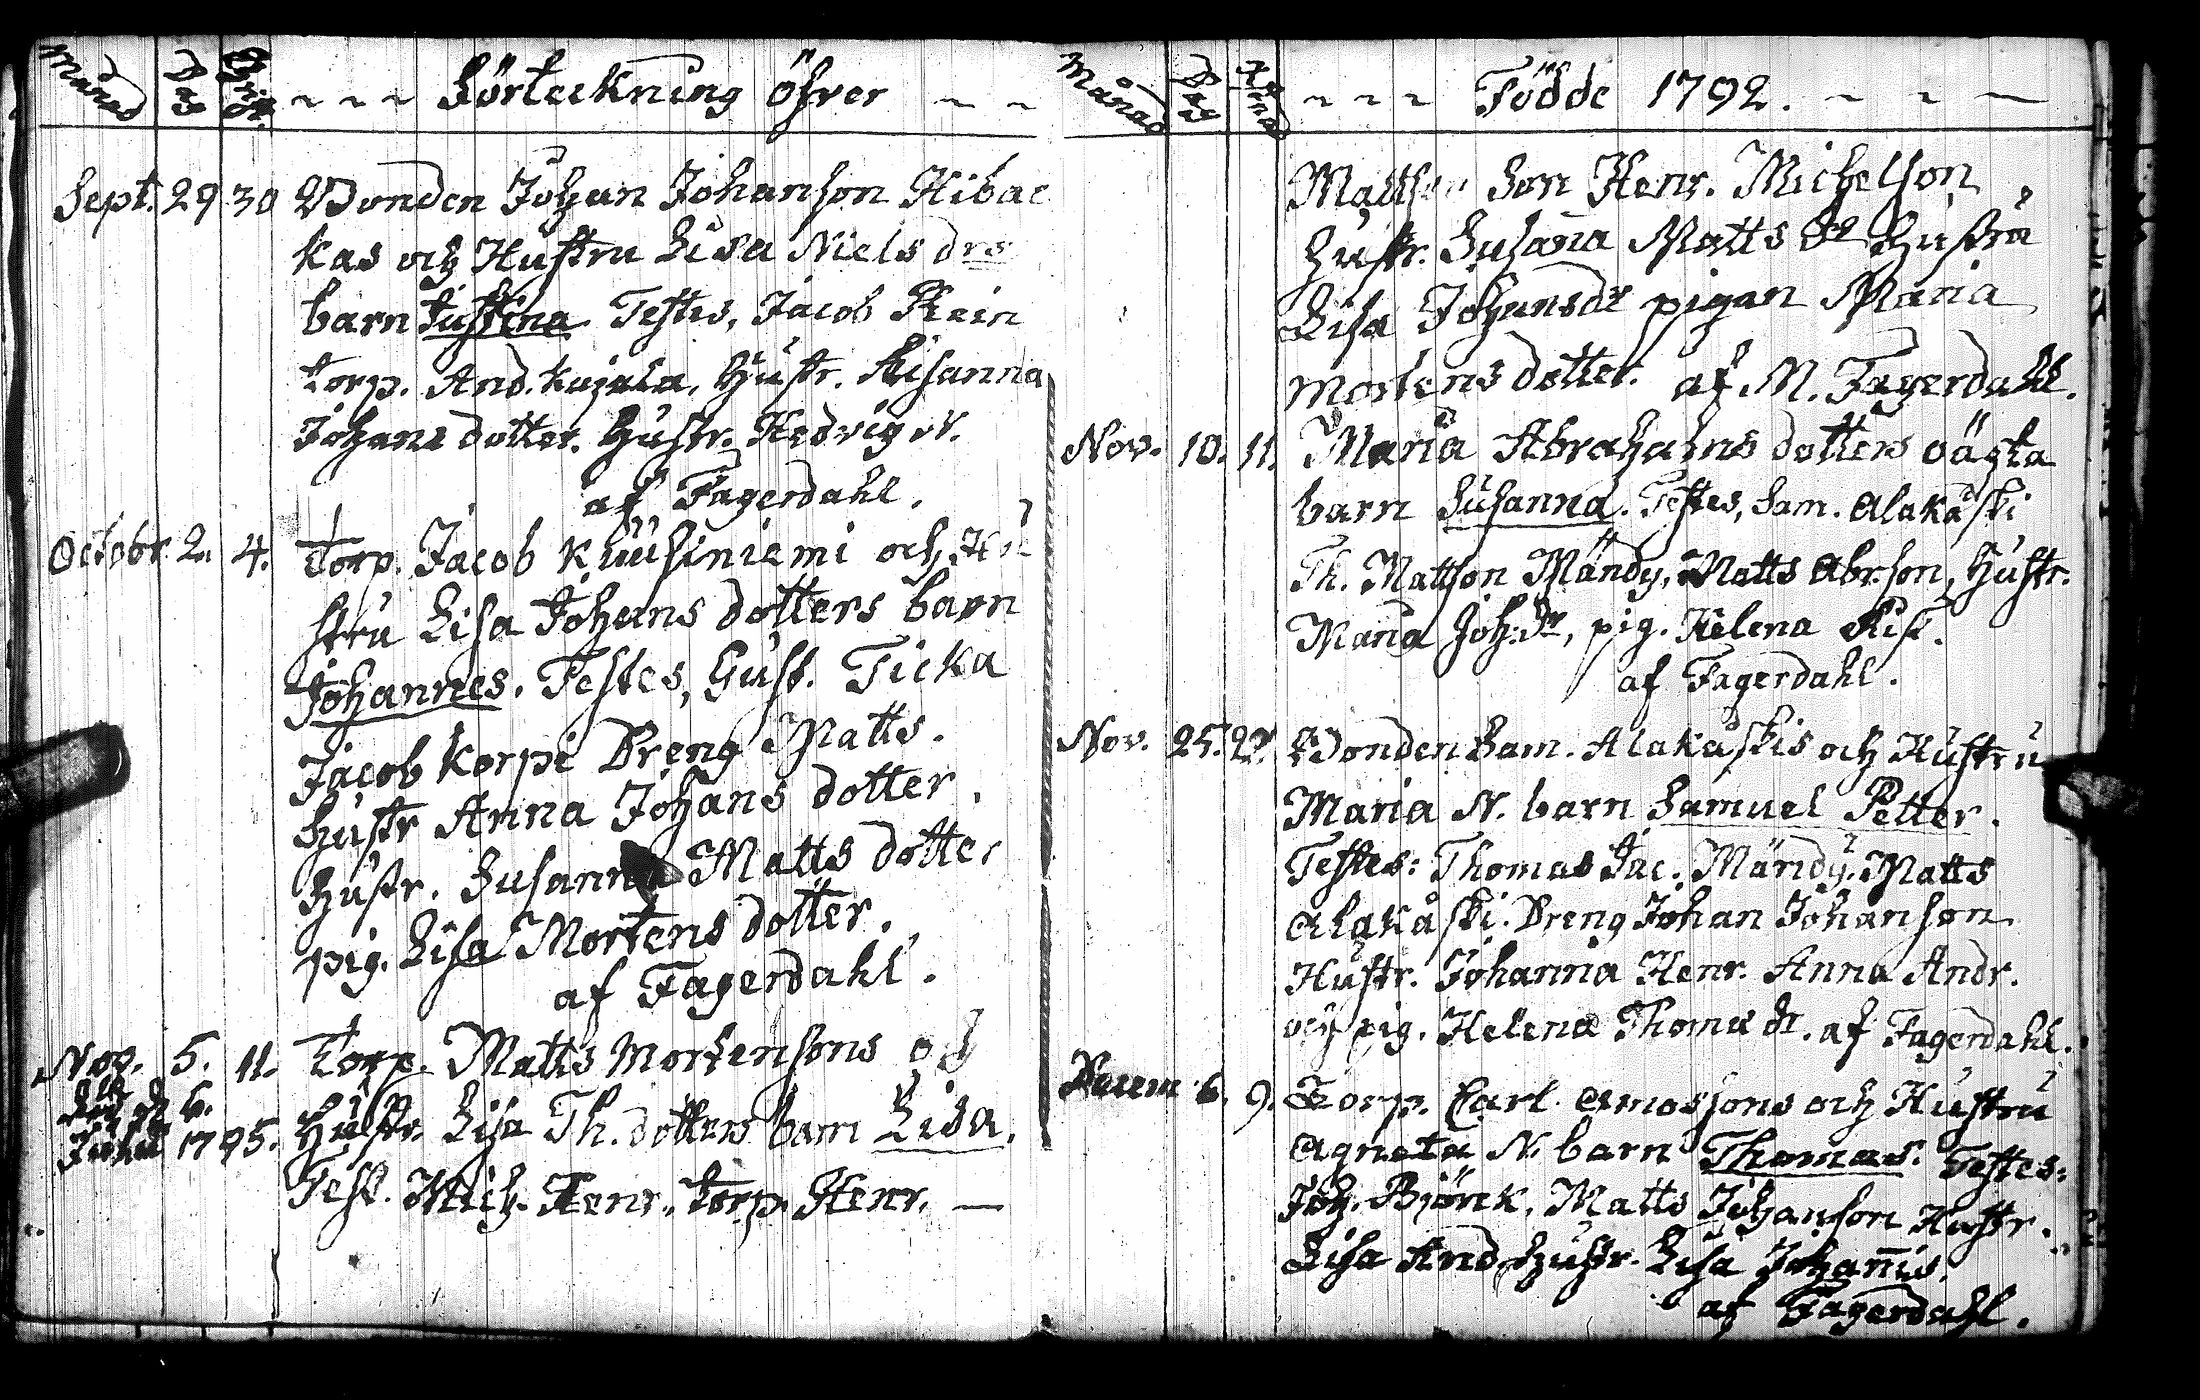 Månad Dag Christ. Förteckning öfver
Sept. 29 30 Bonden Johan Johanson Hibac
kas och Hustru Lisa Niels drs
barn Justina Testes, Jacob Rein
torp. And. Kujala, Hustr. Susanna
Johans dotter. Hustr. Hedvig N.
af Fagerdahl.
Octobr. 2. 4. Torp. Jacob Kuusiniemi och Hu
stru Lisa Johans dotters barn
Johannes. Testes, Gust. Ticka
Jacob Korpi Dreng Matts.
Hustr Anna Johans dotter,
Hustr. Susanna Matts dotter
pig. Lisa Mortens dotter.
af Fagerdahl.
Nov. 5. 11. Torp. Matts Mortensons och
död d 6.
1795. Hustr. Lisa Th. dotters barn Lisa.
Test. Mich. Henr. torp. Henr. —
Månad Dag Födde 1792.
Mattson Son Henr. Michelson,
Hustr. Susana Matts dr Hustru
Lisa Johansdr pigan Maria
Mortens dotter. af M. Fagerdahl.
Nov. 10. 11. Maria Abrahams dotters oägta
barn Susanna. Testes, Sam. Alakaski
Th. Mattson Mändy, Matts Abrson, Hustr.
Maria Joh: dr, pig. Helena Rist.
af Fagerdahl.
Nov. 25. 27. Bonden Sam. Alakaskis och Hustru
Maria N. barn Samuel Petter.
Testes: Thomas Jac. Mändy. Matts
Alakaski. Dreng Johan Johanson
Hustr. Johanna Henr. Anna Andr.
och pig. Helena Thoma dr. af Fagerdahl.
Decem 6. 9. Torp. Carl Amossons och Hustru
Agneta N. barn Thomas. Testes:
Joh. Björck, Matts Johanson Hustr.
Lisa And. Hustr. Lisa Johanis.
af Fagerdahl.